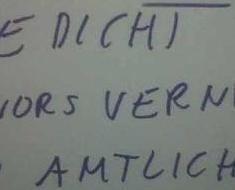 E DICHT
VORS VERN
AMTLICH